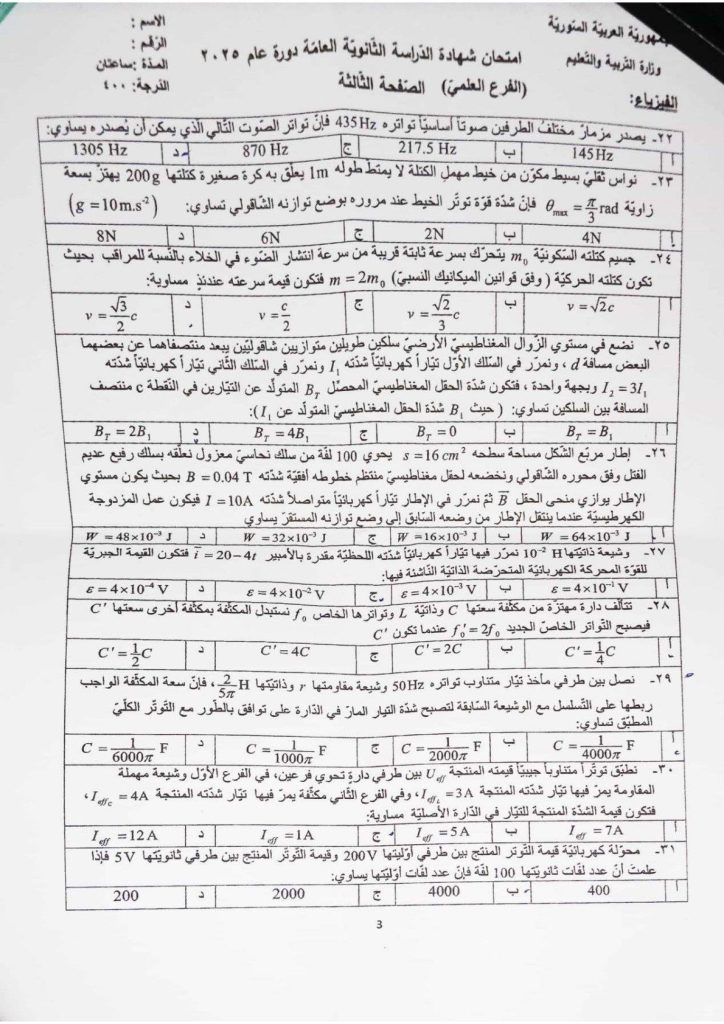 جمهوريّة العربيّة السّوريّة
وزارة التّربية والتّعليم
الفيزياء:
امتحان شهادة الدّراسة الثّانويّة العامّة دورة عام ٢٠٢٥
(الفرع العلميّ) الصّفحة الثّالثة
الاسم :
الرّقم :
المدّة : ساعتان
الدّرجة: ٤٠٠
٢٢- يصدر مزمارٌ مختلفُ الطّرفين صوتاً أساسيّاً تواتره 435 Hz فإنّ تواتر الصّوت التّالي الّذي يمكن أن يُصدره يساوي:
أ 145 Hz ب 217.5 Hz ج 870 Hz د 1305 Hz
٢٣- نواس ثقليّ بسيط مكوّن من خيط مهملِ الكتلة لا يمتطّ طوله 1m يعلّق به كرة صغيرة كتلتها 200g يهتزّ بسعة
زاويّة θmax = π/3 rad فإنّ شدّة قوّة توتّر الخيط عند مروره بوضع توازنه الشّاقولي تساوي: (g = 10m.s⁻²)
أ 4N ب 2N ج 6N د 8N
٢٤- جسيم كتلته السّكونيّة m₀ يتحرّك بسرعة ثابتة قريبة من سرعة انتشار الضّوء في الخلاء بالنّسبة للمراقب بحيث
تكون كتلته الحركيّة ( وفق قوانين الميكانيك النسبيّ) m = 2m₀ فتكون قيمة سرعته عندئذٍ مساوية:
أ v = √2c ب v = √2/3 c ج v = c/2 د v = √3/2 c
٢٥- نضع في مستوي الزّوال المغناطيسيّ الأرضيّ سلكين طويلين متوازيين شاقوليّين يبعد منتصفاهما عن بعضهما
البعض مسافة d ، ونمرّر في السّلك الأوّل تيّاراً كهربائيّاً شدّته I₁ ونمرّر في السّلك الثّاني تيّاراً كهربائيّاً شدّته
I₂ = 3I₁ وبجهة واحدة ، فتكون شدّة الحقل المغناطيسيّ المحصّل B_T المتولّد عن التيّارين في النّقطة c منتصف
المسافة بين السلكين تساوي: ( حيث B₁ شدّة الحقل المغناطيسيّ المتولّد عن I₁):
أ B_T = B₁ ب B_T = 0 ج B_T = 4B₁ د B_T = 2B₁
٢٦- إطار مربّع الشّكل مساحة سطحه s = 16 cm² يحوي 100 لفّة من سلك نحاسيّ معزول نعلّقه بسلك رفيع عديم
الفتل وفق محوره الشّاقولي ونخضعه لحقل مغناطيسيّ منتظم خطوطه أفقيّة شدّته B = 0.04 T بحيث يكون مستوي
الإطار يوازي منحى الحقل B⃗ ثمّ نمرّر في الإطار تيّاراً كهربائيّاً متواصلاً شدّته I = 10A فيكون عمل المزدوجة
الكهرطيسيّة عندما ينتقل الإطار من وضعه السّابق إلى وضع توازنه المستقرّ يساوي
أ W = 64×10⁻³ J ب W = 16×10⁻³ J ج W = 32×10⁻³ J د W = 48×10⁻³ J
٢٧- وشيعة ذاتيّتها 10⁻² H نمرّر فيها تيّاراً كهربائيّاً شدّته اللّحظيّة مقدرة بالأمبير i = 20 − 4t فتكون القيمة الجبريّة
للقوّة المحركة الكهربائيّة المتحرّضة الذاتيّة النّاشئة فيها:
أ ε = 4×10⁻¹ V ب ε = 4×10⁻³ V ج ε = 4×10⁻² V د ε = 4×10⁻⁴ V
٢٨- تتألّف دارة مهتزّة من مكثّفة سعتها C وذاتيّة L وتواترها الخاص f₀ نستبدل المكثّفة بمكثّفة أخرى سعتها C'
فيصبح التّواتر الخاصّ الجديد f₀' = 2f₀ عندما تكون C'
أ C' = 1/4 C ب C' = 2C ج C' = 4C د C' = 1/2 C
٢٩- نصل بين طرفي مأخذ تيّار متناوب تواتره 50Hz وشيعة مقاومتها r وذاتيّتها 2/5π H ، فإنّ سعة المكثّفة الواجب
ربطها على التّسلسل مع الوشيعة السّابقة لتصبح شدّة التيار المارّ في الدّارة على توافق بالطّور مع التّوتّر الكلّيّ
المطبّق تساوي:
أ C = 1/4000π F ب C = 1/2000π F ج C = 1/1000π F د C = 1/6000π F
٣٠- نطبّق توتّراً متناوباً جيبيّاً قيمته المنتجة U_eff بين طرفي دارة تحوي فرعين، في الفرع الأوّل وشيعة مهملة
المقاومة يمرّ فيها تيّار شدّته المنتجة I_effL = 3A ، وفي الفرع الثّاني مكثّفة يمرّ فيها تيّار شدّته المنتجة I_effC = 4A ،
فتكون قيمة الشدّة المنتجة للتيّار في الدّارة الأصليّة مساوية:
أ I_eff = 7A ب I_eff = 5A ج I_eff = 1A د I_eff = 12A
٣١- محوّلة كهربائيّة قيمة التّوتر المنتج بين طرفي أوّليّتها 200V وقيمة التّوتّر المنتج بين طرفي ثانويّتها 5V فإذا
علمتَ أنّ عدد لفّات ثانويّتها 100 لفّة فإنّ عدد لفّات أوّليّتها يساوي:
أ 400 ب 4000 ج 2000 د 200
3